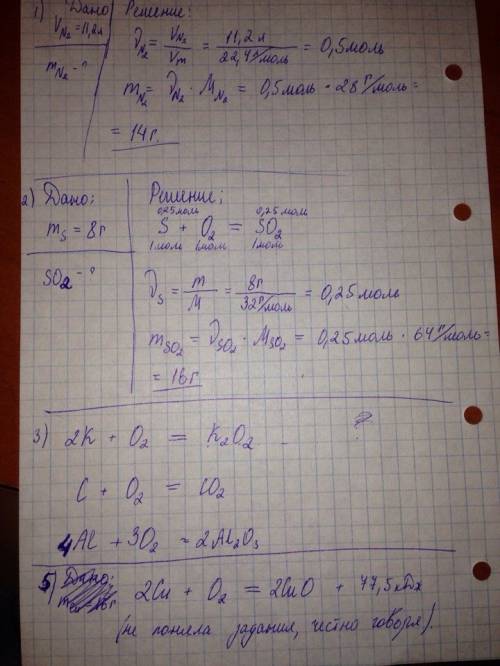 1) Дано Решение:
V_N₂ = 11,2л
m_N₂ - ?
ν_N₂ = V_N₂/Vm = 11,2 л/22,4 л/моль = 0,5 моль
m_N₂ = ν_N₂ · M_N₂ = 0,5 моль · 28 г/моль =
= 14г.
2) Дано: Решение:
m_S = 8г
SO₂ - ?
0,25 моль 0,25 моль
S + O₂ = SO₂
1 моль 1 моль 1 моль
ν_S = m/M = 8г/32 г/моль = 0,25 моль
m_SO₂ = ν_SO₂ · M_SO₂ = 0,25 моль · 64 г/моль =
= 16 г
3) 2K + O₂ = K₂O₂ - ?
C + O₂ = CO₂
4Al + 3O₂ = 2Al₂O₃
5) Дано: 2Cu + O₂ = 2CuO + 77,5 кДж
(не поняла задания, честно говоря).